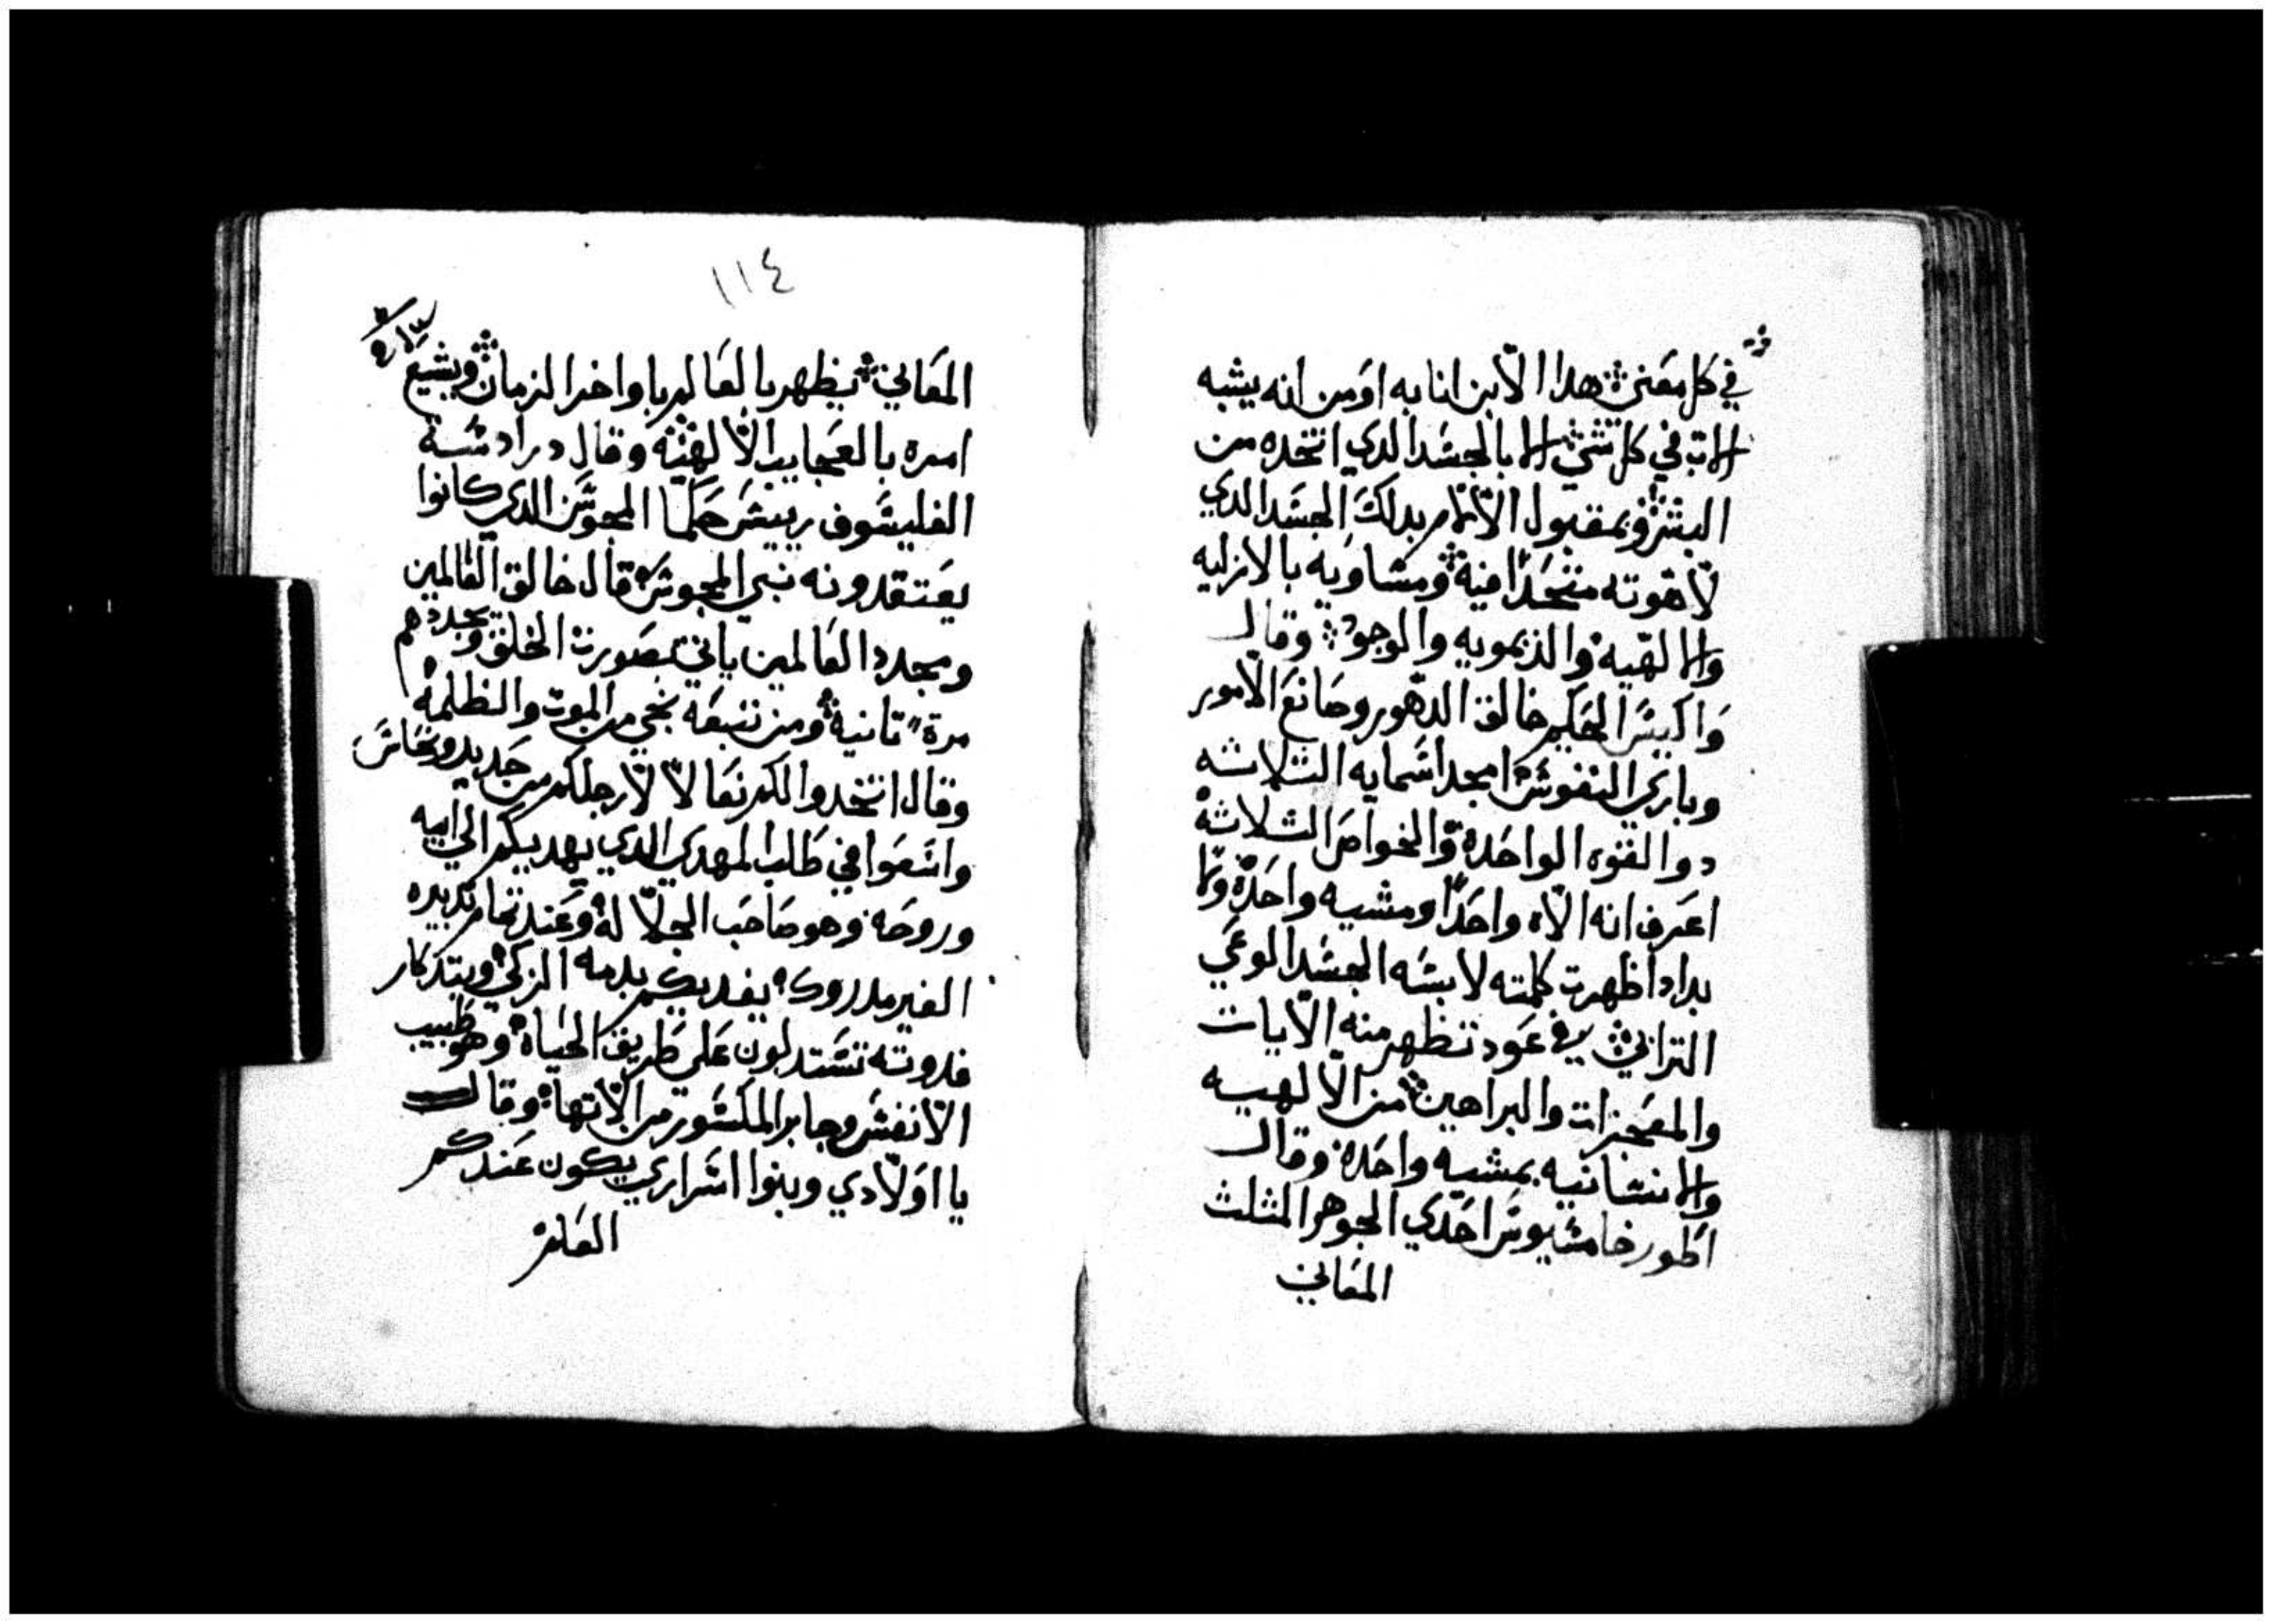 في كل معنى هدا الابن انا به اومن انه يشبه
الاب في كل شي الا بالجسد الدي اتخده من
البشر وبمقبول الالام بدلك الجسد الدي
لاهوته متحدا فيه ومساويه بالازليه
والالهيه والديمويه والوجود وقال
واكيس الحكيم خالق الدهور وصانع الامور
وباري النفوس امجد اسمايه الثلاثه
دوا القوه الواحده والخواص الثلاثه
اعرف انه الاه واحدا ومشيه واحده ولما
بدا واظهرت كلمته لابسه الجسد
الترابي تظهر منه الايات
والمعجزات والبراهين من الالهيه
والانسانيه بمشيه واحده وقال
اطور خامسيوس احدي الجوهر المثلث
المعاني
١١٤
المعاني يظهر بالعالم باواخر الزمان ويشيع
امره بالعجايب الالهيه وقال درادشة
الفليسوف رييس حكما المجوس الدي كانوا
يعتقدونه نبي المجوس قال خالق العالمين
ومجدد العالمين ياتي بصورت الخلق ويجددهم
مرة تانيه ومن تبعه نجي من الموت والظلمه
وقال اتخدوا لكم نعالا لارجلكم من جديد ونحاس
واسعوا في طلب المهدي الدي يهديكم الي ابيه
وروحه وهو صاحب الجلاله وعند تمام تدبيره
الغير مدروك يفديكم بدمه الزكي وبتدكار
فدوته تستدلون علي طريق الحياه وهو طبيب
الانفس وجابر المكسور من الاتها وقال
يا اولادي وبنوا اسراري يكون عندكم
العلم